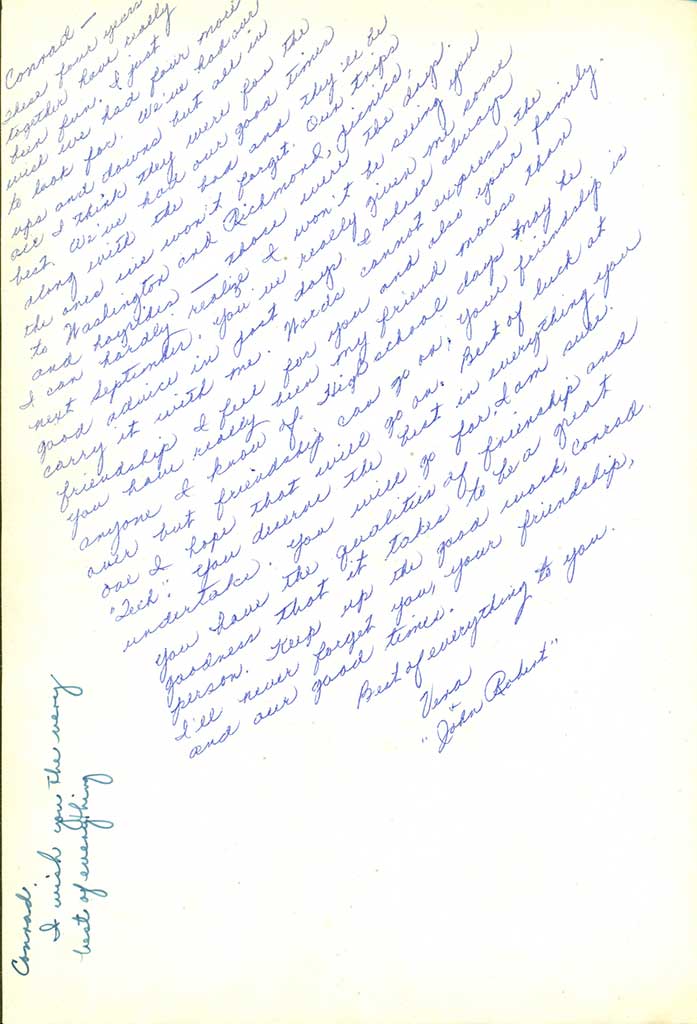 Conrad —
These four years
together have really
been fun. I just
wish we had four more
to look for. We've had our
ups and downs but all in
all I think they were for the
best. We've had our good times
along with the bad and they'll be
the ones we won't forget. Our trips
to Washington and Richmond, picnics,
and hayrides — those were the days.
I can hardly realize I won't be seeing you
next September. You've really given me some
good advice in past days. I shall always
carry it with me. Words cannot express the
friendship I feel for you and also your family.
You have really been my friend moreso than
anyone I know of. High school days may be
over but friendship can go on. Your friendship is
one I hope that will go on. Best of luck at
"Tech". You deserve the best in everything you
undertake. You will go far, I am sure.
You have the qualities of frienship and
goodness that it takes to be a great
person. Keep up the good work, Conrad.
I'll never forget you, your friendship,
and our good times.
Best of everything to you.
Vena
+
"John Robert"
Conrad.
I wish you the very
best of everything